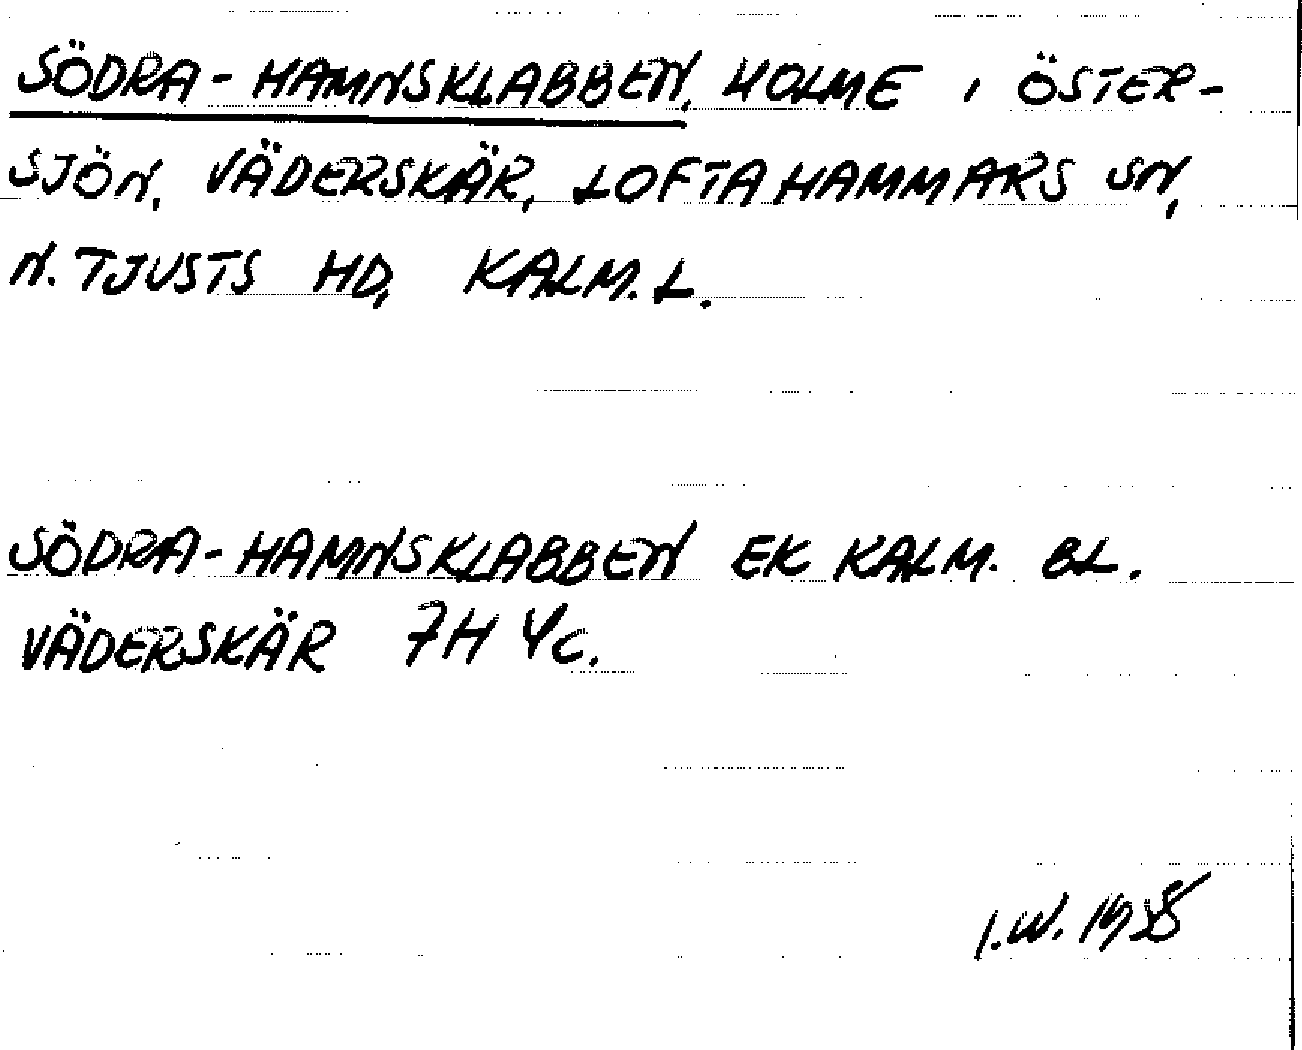 SÖDRA-HAMNSKLABBEN, HOLME I ÖSTER-
SJÖN, VÄDERSKÄR, LOFTAHAMMARS SN,
N. TJUSTS HD, KALM. L.
SÖDRA-HAMNSKLABBEN EK KALM. BL.
VÄDERSKÄR 7H 4c.
I.W.